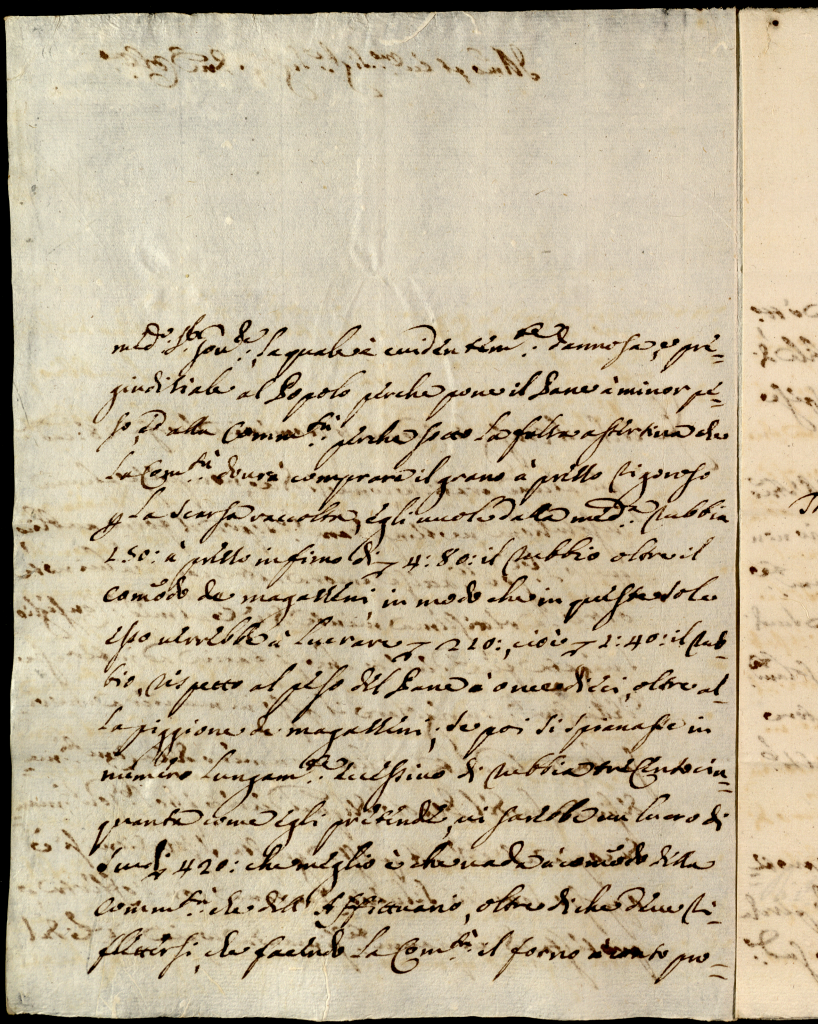 med.ª S.ª Gov.ᵉ, la quale è evidentem.ᵗᵉ dannosa, e pre=
giuditiale al Popolo perche pone il Pane à minor pe=
so, ed alla Comm.ᵗà perche sotto la falsa assertiva che
la Com.ᵗà dovrà comprare il grano à prezzo rigoroso
p la scarsa raccolta, egli vuole dalla med.ª rubbia
150: à prezzo infimo di 4: 80: il rubbio oltre il
comodo de magazzini, in modo che in queste sole
esso verrebbe à lucrare 210:, cioè 1: 40: il rub=
bio, rispetto al peso del Pane à once dieci, oltre al=
la piggione de magazzini; se poi si spianasse in
numero lungam.ᵗᵉ eccessivo di rubbia trecento cin=
quanta come egli pretende, vi sarebbe un lucro di
scudi 420: che meglio è che vada à comodo della
Comm.ᵗà che dell' Affittuario, oltre di che deve ri=
flettersi, che facendo la Com.ᵗà il forno à conto pro=